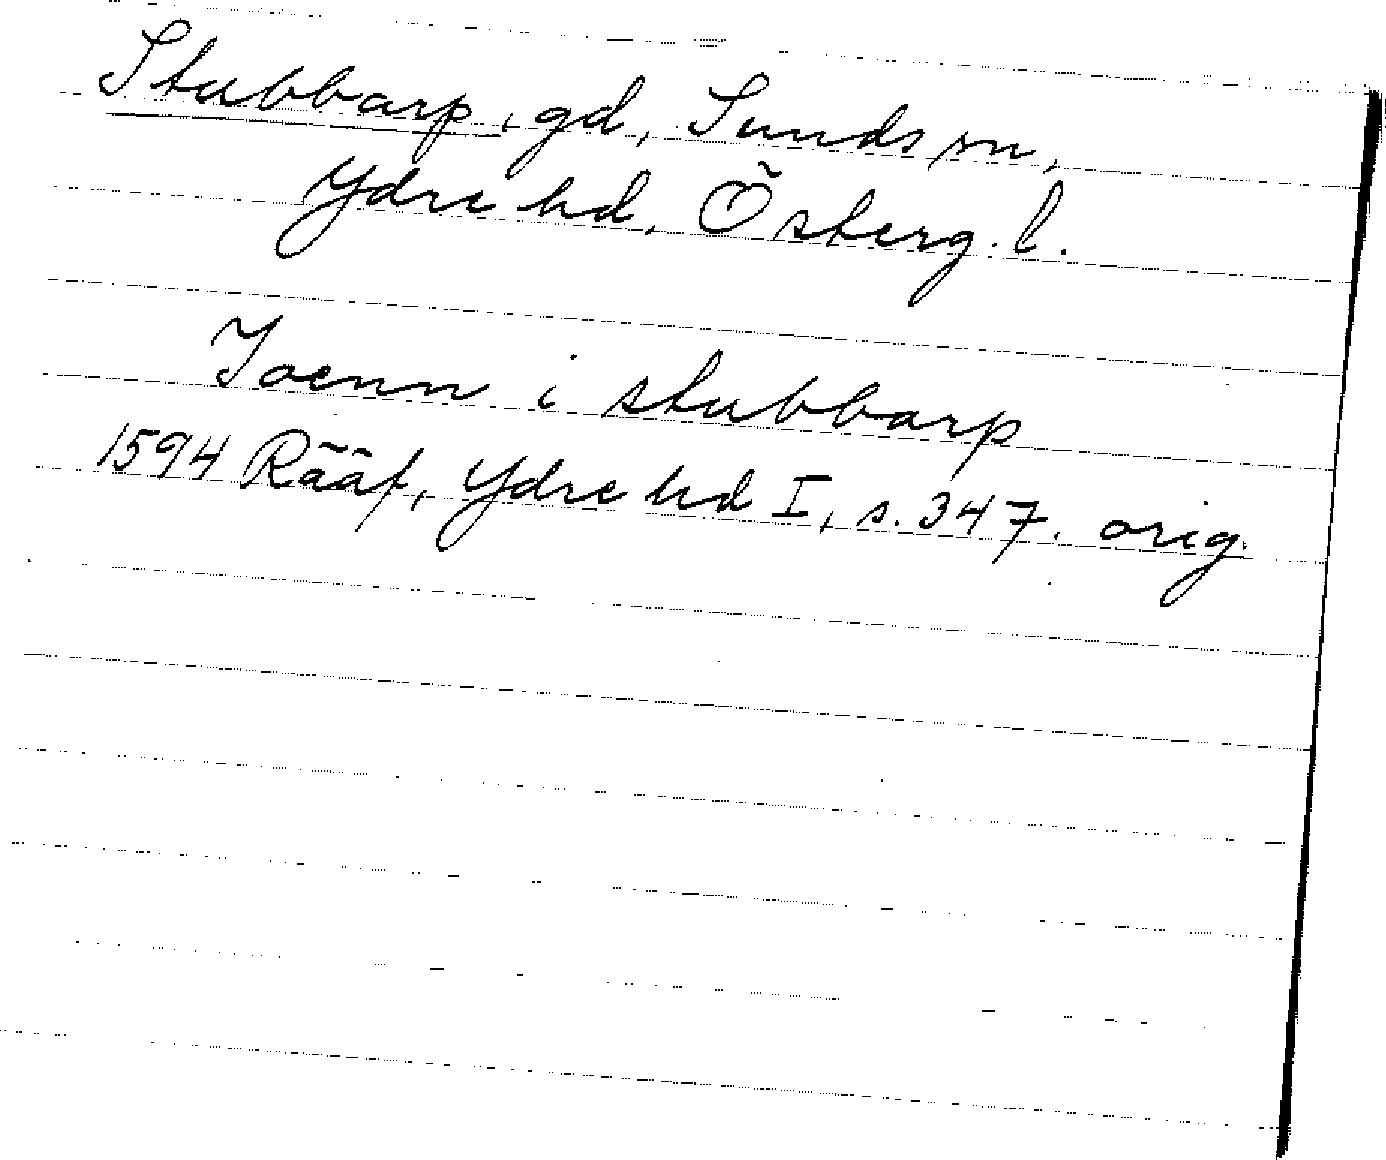 Stubbarp, gd, Sunds sn,
Ydre hd, Österg. l.
Joenn i stubbarp
1594 Rääf, Ydre hd I, s. 347. orig.